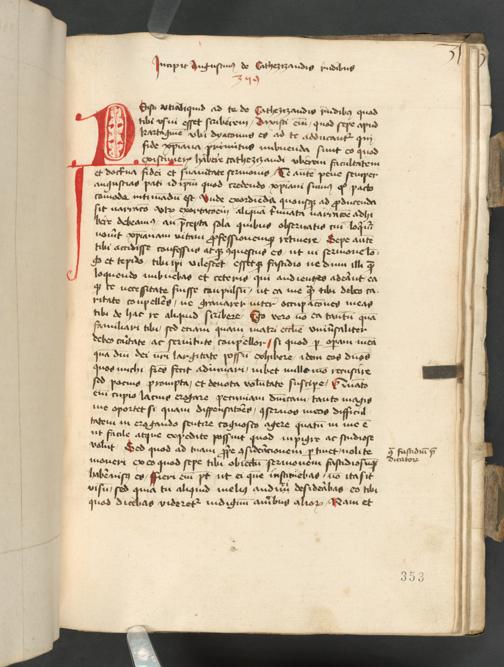 Incipit Augustinus de Cathezizandis rudibus
51
Petisti ut aliquid ad te de Cathezizandis rudibus quod
tibi usui esset scriberem / dixisti eni quod sepe apud
kartagine ubi dyaconus es ad te adducantur qui
fide xpiana primitus imbuendi sunt eo quod
existimeris habere cathezizandi uberem facultatem
et doctrina fidei et suauitate sermonis / Te autem pene semper
angustias pati id ipsum quod credendo xpiani sumus quo pacto
comode intimandum est / unde exordienda quousque ad perducenda
sit narracio utrum exortacionem aliquam terminata narracione adhi
bere debeamus / an precepta sola quibus obseruatis cui loquimur
nouit xpianam uitam professionemque retinere / Sepe autem
tibi accidisse confessus atque questus es / ut in sermone lo
go et tepido tibi ipsi uilesceres essesque fastidio ne dum illi quem
loquendo imbuebas et ceteris qui audientes aderant ea
que te necessitate fuisse compulsum / ut ea me quam tibi debeo ca
ritate compelleres / ne grauarer inter occupaciones meas
tibi de hac re aliquid scribere / Ego vero non ea tantum quam
familiari tibi / sed etiam quam matri ecclesie uniuersaliter
debeo caritate ac seruitute compellor / si quid per operam meam
quam dni dei nri largitate possum exhibere / idem eos dns
quos michi fratres fecit adiuuari iubet nullo modo recusare
sed pocius prompta et deuota voluntate suscipere / Quanto
eni cupio lacius erogare pecuniam dominicam / tanto magis
me oportet si quam dispensatores conseruos meos difficul
tatem in erogando sentire cognosco agere quantum in me est
ut facile atque expedite possint quod inpigre ac studiose
volunt / Sed quod ad tuam proprie considerationem pertinet / nolite
moueri ex eo quod sepe tibi abiectum sermonem fastidiosumque
habere visus es / Fieri eni potest ut ei quem instruebas / non ita sit
visum / sed quia tu aliquid melius audiri desiderabas eo tibi
quod dicebas videretur indignum auribus aliorum / Nam et
353